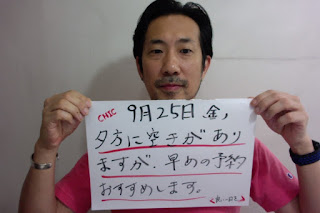 CHIC 9月25日 金,
夕方に空きがあり
ますが、早めの予約
おすすめします。